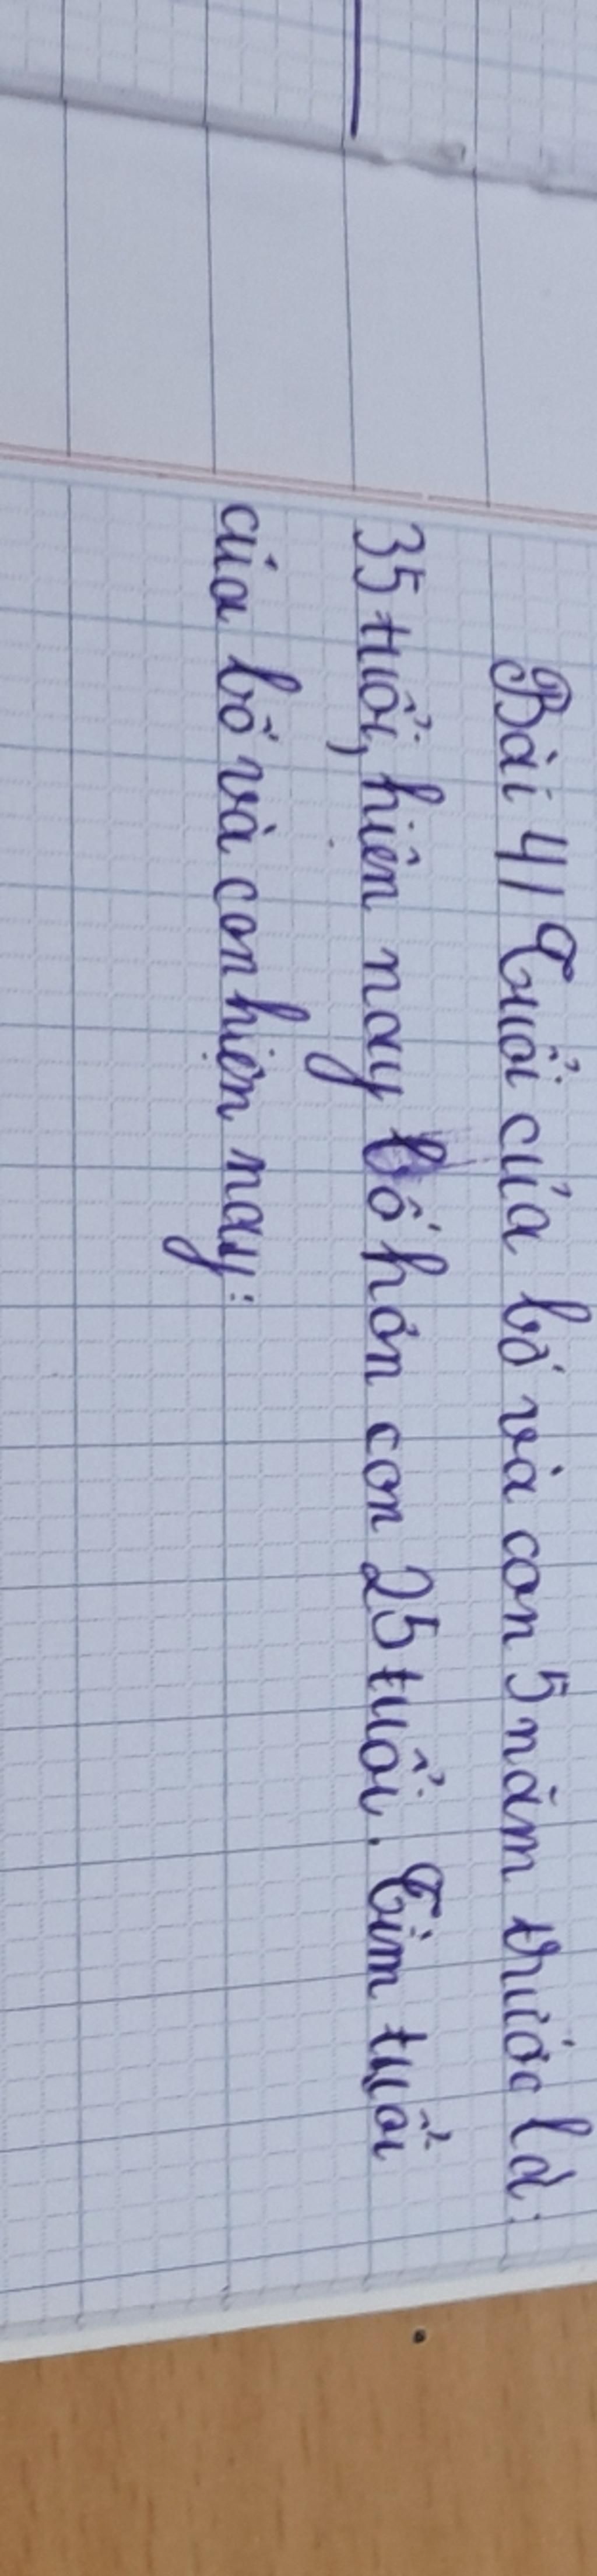 Bài 4/ Tuổi của bố và con 5 năm trước là:
35 tuổi, hiện nay bố hơn con 25 tuổi. Tìm tuổi
của bố và con hiện nay: